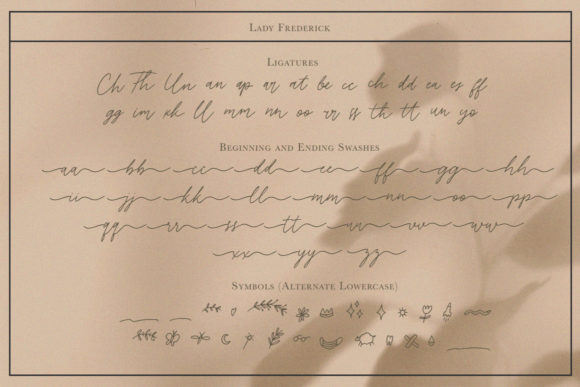 LADY FREDERICK
LIGATURES
Ch Th Un an ap ar at be cc ch dd ea es ff
gg im kk ll mm nn oo rr ss th tt un yo
BEGINNING AND ENDING SWASHES
aa bb cc dd ee ff gg hh
ii jj kk ll mm nn oo pp
qq rr ss tt uu vv ww
xx yy zz
SYMBOLS (ALTERNATE LOWERCASE)